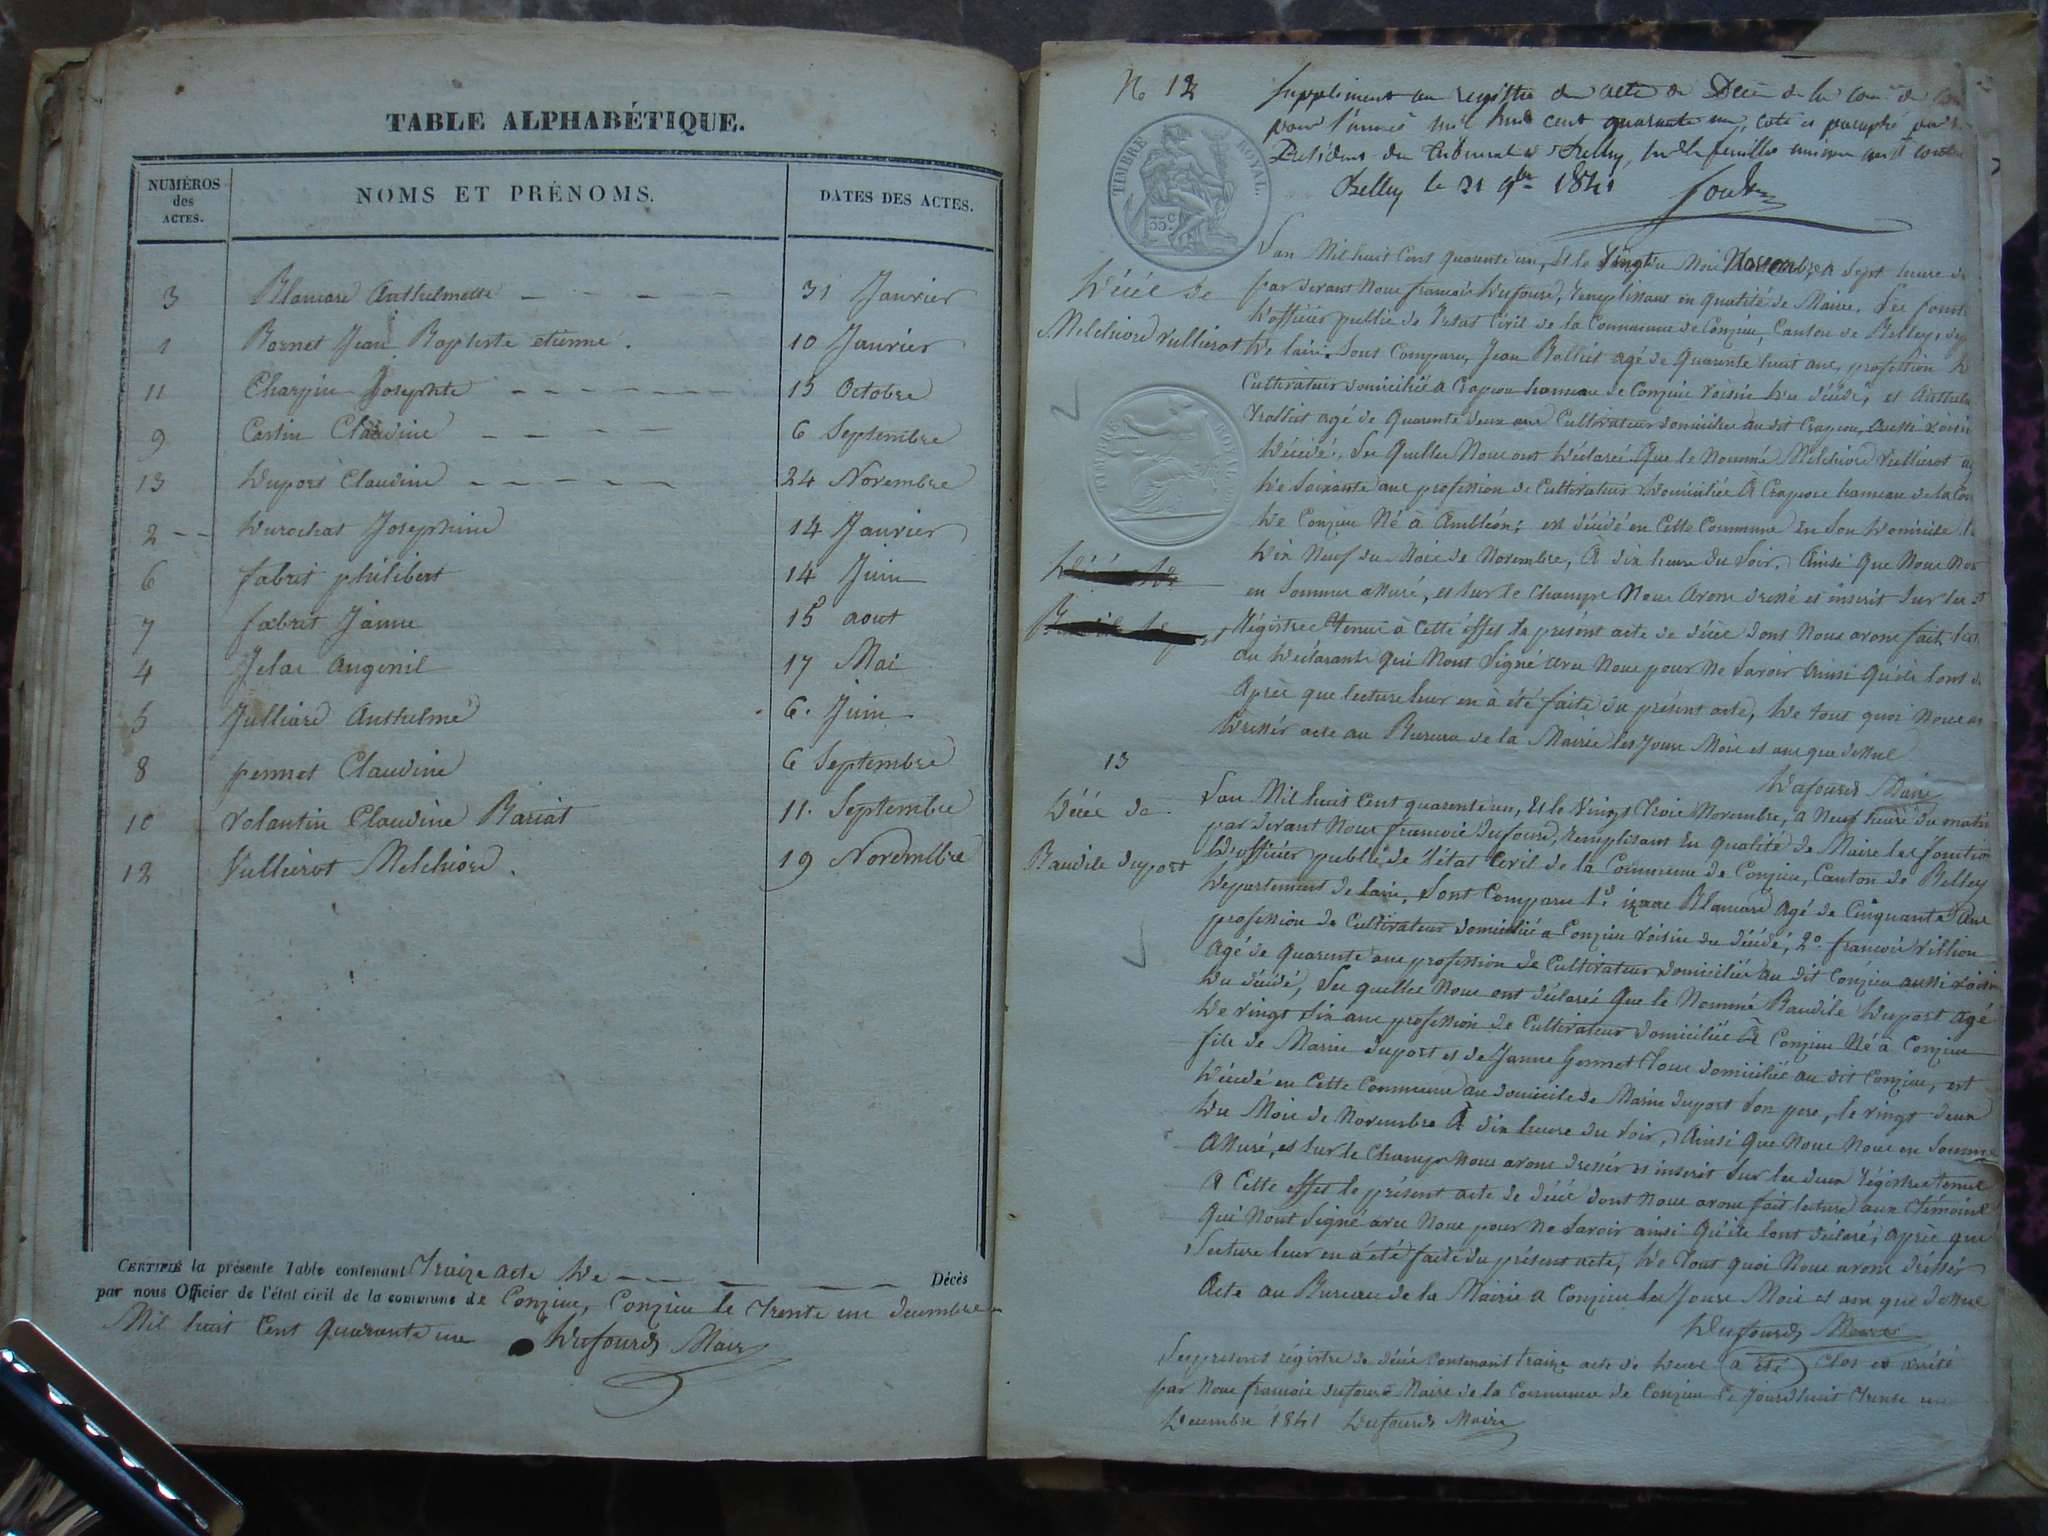 TABLE ALPHABÉTIQUE.
NUMÉROS des ACTES.
NOMS ET PRÉNOMS.
DATES DES ACTES.
3 Blanard Anthelmette 31 Janvier
1 Bornet Jean Baptiste etienne. 10 Janvier
11 Charpin Josephte 15 Octobre
9 Costin Claudine 6 Septembre
13 Duport Claudine 24 Novembre
2 Durochat Josephine 14 Janvier
6 fabrit philibert 14 Juin
7 fabrit Janne 15 aout
4 Jelas 17 Mai
5 Julliard Anthelme 6. Juin
8 pernnet Claudine 6 Septembre
10 Volantin Claudine 11. Septembre
12 Vullierot Melchiord. 19 Novembre
CERTIFIÉ la présente Table contenant Traize acte De Décès
par nous Officier de l'état civil de la commune de Conzieu, Conzieu le Trente un decembre
Mil huit Cent quarante un Dufourd Maire
No 12
Supplement au registre des actes de Décès de la com de
pour l'année mil huit cent quarante un, coté et paraphé par
President du tribunal de Belley, feuille
Belley le 21 9bre 1841
TIMBRE ROYAL.
35 c
L'an Mil huit Cent quarente un, Et le Vingt du Moi Novembre à Sept heure
Décé de
par devant Nous francois Dufourd, remplissant en qualité de Maire. Les fonct
D'officier public de l'etat Civil de la Commune de Conzieu, Canton de Belley, dep
Melchiord Vullierot
De lain. Sont Comparu, Jean Rolliet agé de quarente huit ans, profession
Cultivateur domicilié a Crapeou hameau de Conzieu voisin Du décédé, et Anthel
TIMBRE ROYAL
Rolliet agé de quarente deux ans Cultivateur domicilié au dit Crapeou, aussi voisin
Décédé, Les quelles Nous ont Déclaré Que le Nommé Melchiord Vullierot
De Soixante ans profession de Cultivateur Domicilié A Crapeou hameau de la Com
De Conzieu Né à Ambléon; est décédé en Cette Commune En Son Domicile
Dix Neuf du Mois de Novembre, À dix heure du Soir, Ainsi Que Nous Nou
en Somme assuré, et sur le Champs Nous Avons dressé et inscrit sur les
Régistres Tenue à Cette effet le présent acte de décé dont Nous avons fait
au Déclarants qui N'ont Signé avec Nous pour Ne Savoir ainsi qu'ils l'ont
Après que lecture leur en à été faite du présent acte, De tout quoi Nous
Dresser acte au Bureau de la Mairie les Jours Mois et ans que dessus
Dufourd Maire
13
L'an Mil huit Cent quarente un, Et le Vingt Trois Novembre, a Neuf heure du matin
Décé de
par devant Nous francois dufourd, remplissant En qualité de Maire les fonction
Baudile duport
D'officier public de l'état Civil de la Commune de Conzieu, Canton de Belley
Département de lain, Sont Comparu 1º izaac Blanard agé de Cinquante Ans
profession de Cultivateur domicilié a Conzieu voisin du décédé, 2º francois villion
agé de quarente ans profession de Cultivateur domicilié au dit Conzieu aussi voisin
Du décédé, Les quelles Nous ont déclaré Que le Nommé Baudile Duport agé
De vingt Six ans profession de Cultivateur domicilié A Conzieu Né à Conzieu
fils de Marin duport et de Janne Gonnet Tous domicilié au dit Conzieu, est
Décédé en Cette Commune au domicile de Marin duport son pere, le vingt deux
Du Mois de Novembre À dix heure du soir, Ainsi Que Nous Nous en Somme
Assuré, et sur le Champs Nous avons dresser et inscrit sur les deux régistres tenue
A Cette effet le présent acte de décé dont Nous avons fait lecture aux Témoins
Qui N'ont Signé avec Nous pour Ne Savoir ainsi Qu'ils l'ont déclaré, Après que
lecture leur en à été faite du présent acte, De Tout quoi Nous avons dresser
Acte au Bureau de la Mairie a Conzieu les Jours Mois et ans que dessus
Dufourd Maire
Le présent régistre de décé contenant traize acte de a été Clos et arrété
par Nous francois dufourd Maire de la Commune de Conzieu Ce Jourd'huit trente un
Decembre 1841 Dufourd Maire